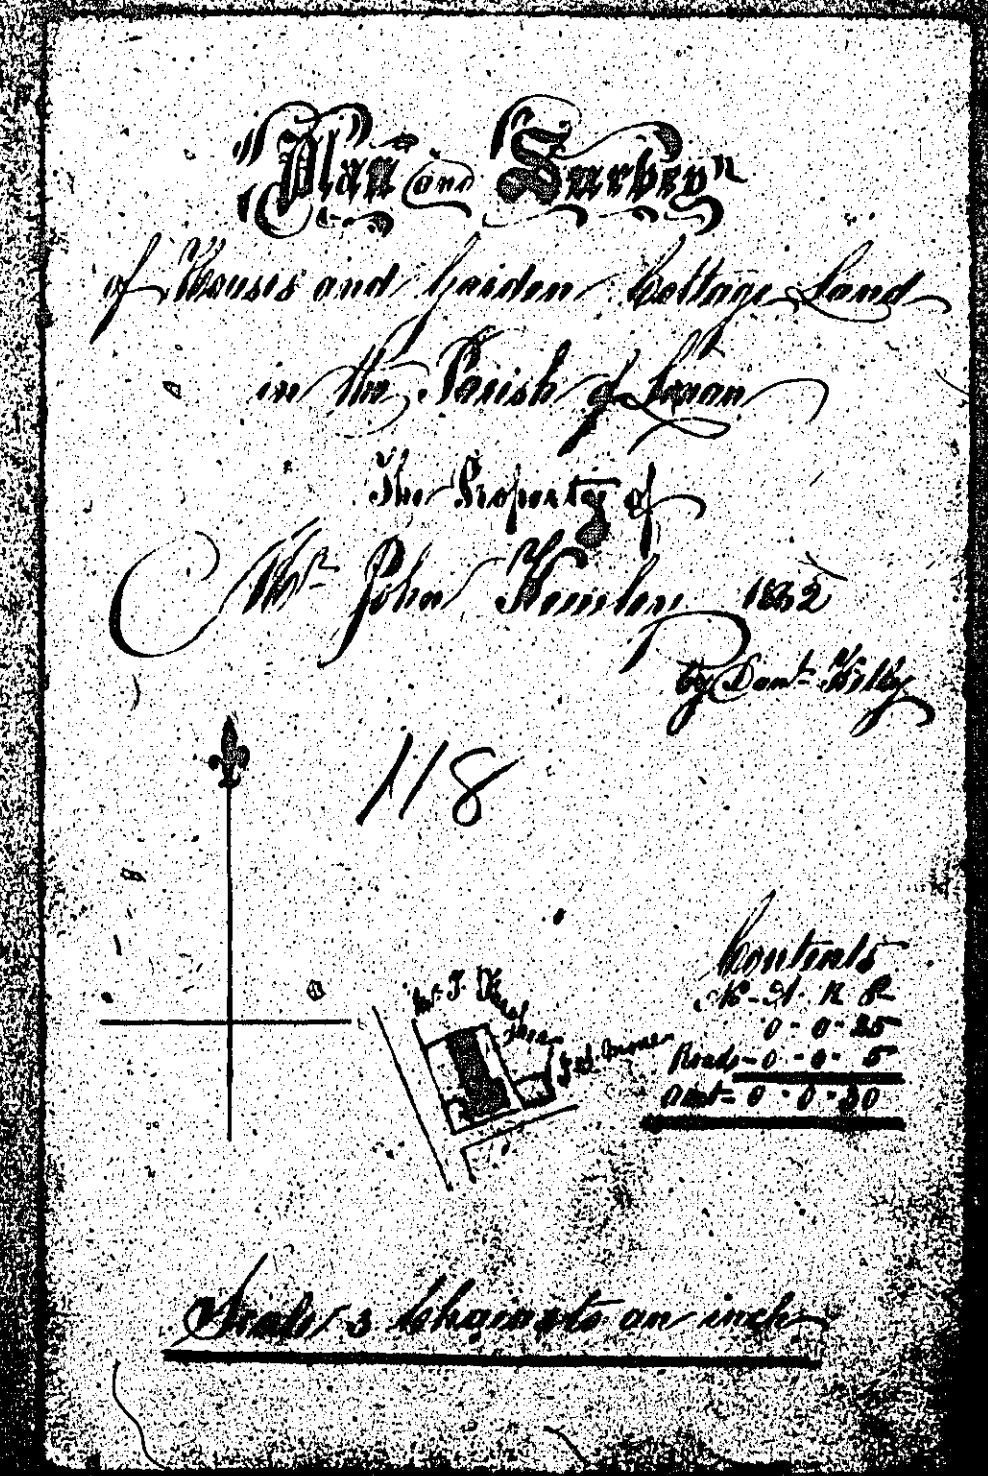 "Plan and Survey"
of Houses and Garden Cottage Land
in the Parish of Lonan
The Property of
Mr John Kewley 1882
by Danl Kelly
118
Contents
No A. R P.
0 - 0 - 25
Roads - 0 - 0 - 5
Amt - 0 - 0 - 30
Mr J.
Scale 3 Chains to an inch